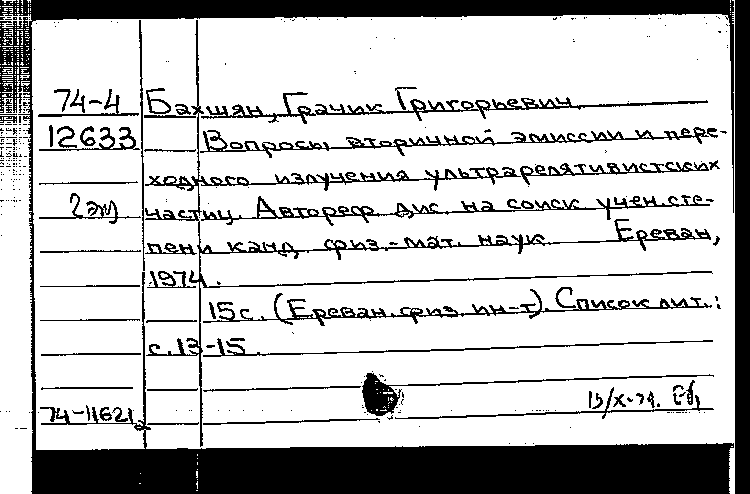 74-4 Бахшян, Грачик Григорьевич.
12633 Вопросы вторичной эмиссии и пере-
ходного излучения ультрарелятивистских
2 эк) частиц. Автореф. дис. на соиск. учен. сте-
пени канд. физ.-мат. наук. Ереван,
1974.
15с. (Ереван. физ. ин-т). Список лит.:
с. 13-15.
74-11621